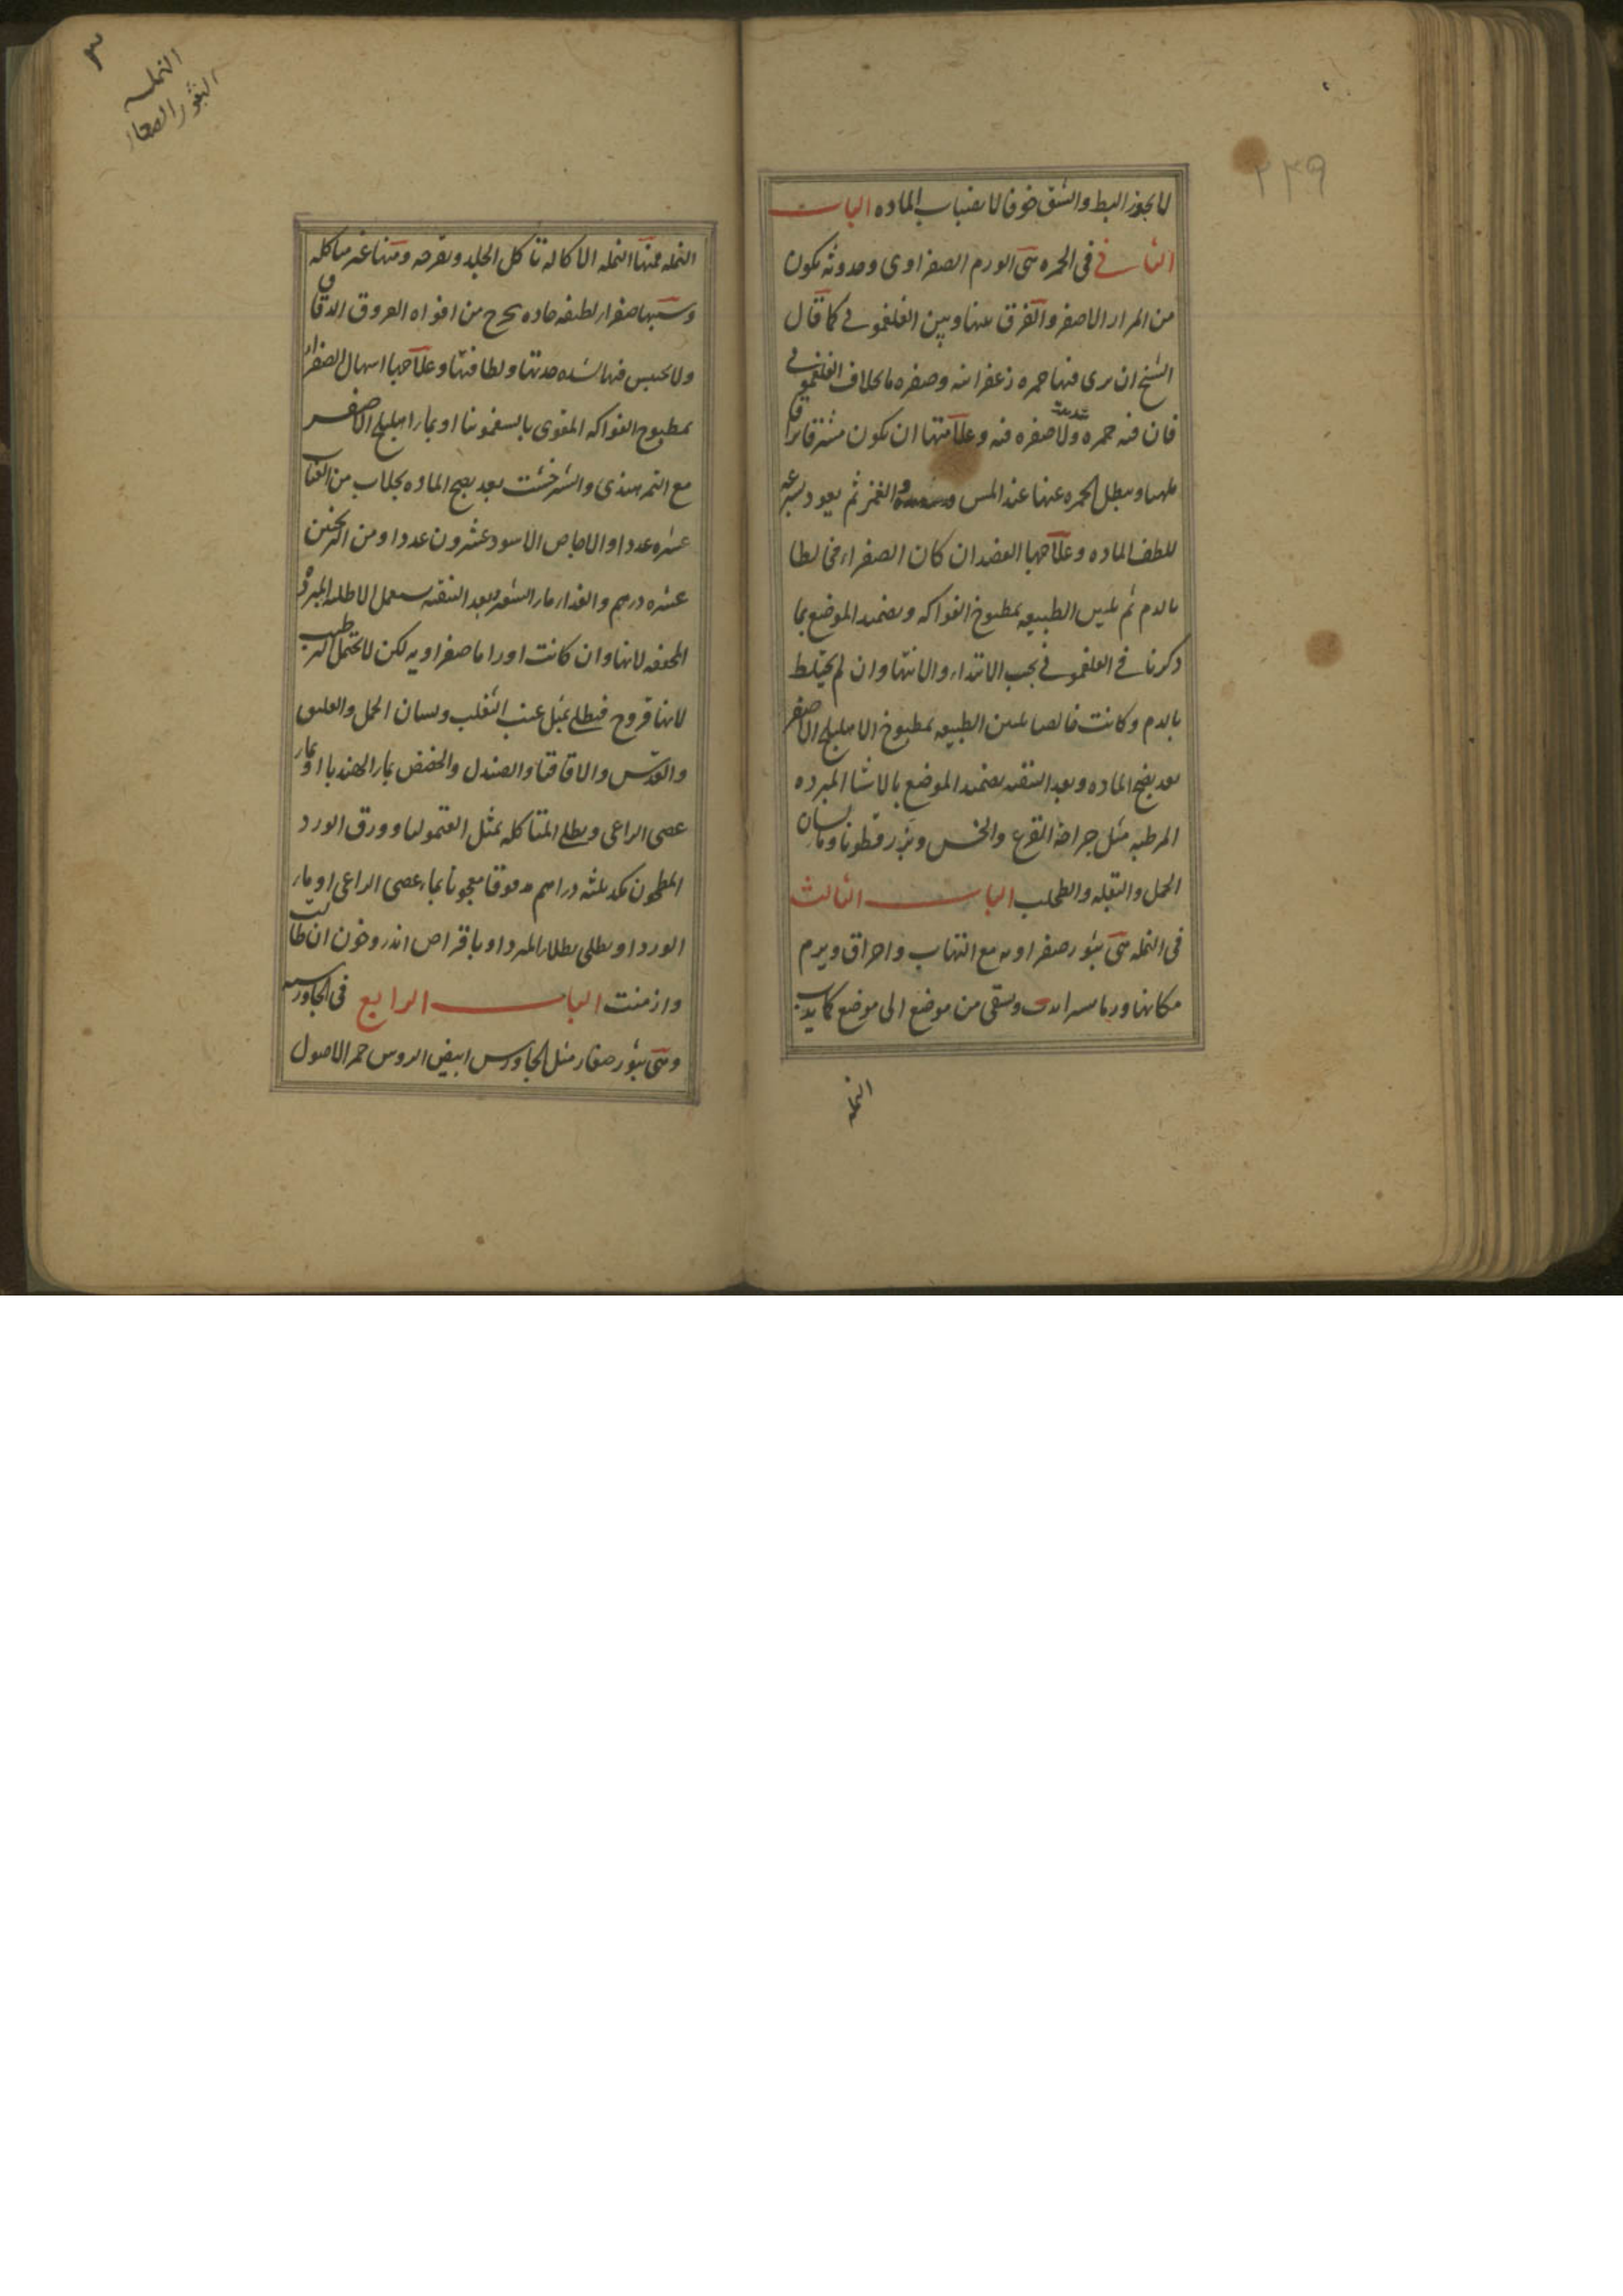 ٢٢٩
لا يجوز البط والشق خوفا لانصباب الماده الباب
الثاني في الحمره هي الورم الصفراوي وحدوثه يكون
من المرار الاصفر والفرق بينها وبين الفلغموني كما قال
الشيخ ان يرى فيها حمره زعفرانيه وصفره ما بخلاف الفلغموني
فان فيه حمره شديده ولا صفره فيه وعلامتها ان يكون مشرقا براقا
ملهبا ويبطل الحمره عنها عند المس والغمز ثم يعود بسرعه
للطف الماده وعلاجها الفصد ان كان الصفراء مخالطا
بالدم ثم تليين الطبيعه بمطبوخ الفواكه وتضميد الموضع بما
ذكرنا في الفلغموني بحسب الابتداء والانتها وان لم يختلط
بالدم وكانت خالصا تليين الطبيعه بمطبوخ الاهليلج الاصفر
بعد نضج الماده وبعد التنقيه تضميد الموضع بالاشيا المبرده
المرطبه مثل جراده القرع والخس وبزر قطونا ولسان
الحمل والبقله والطحلب الباب الثالث
في النمله هي بثور صفراويه مع التهاب واحراق ويرم
مكانها وربما من موضع الى موضع كما يدب
النمله
٣
النمله
البثور الصغار
النمله فمنها النمله الاكاله تاكل الجلد وتقرحه ومنها غير متاكله
وسببها صفراء لطيفه حاده يخرج من افواه العروق الدقاق
ولا يحبس فيها لشده حدتها ولطافتها وعلاجها اسهال الصفراء
بمطبوخ الفواكه المقوى بالسقمونيا او بماء اهليلج الاصفر
مع التمر هندي والشيرخشت بعد نضج الماده بجلاب من العناب
عشره عددا والاجاص الاسود عشرون عددا ومن الترنجبين
عشره درهم والغذاء ماء الشعير وبعد التنقيه يستعمل الاطليه المبرده
المجففه لانها وان كانت اوراما صفراويه لكن لا تحتمل الترطيب
لانها قروح فيطلى بمثل عنب الثعلب ولسان الحمل والعليق
والعدس والاقاقيا والصندل والحضض بماء الهندبا او بماء
عصى الراعي ويطلى المتاكله بمثل القيموليا وورق الورد
المطحون ثلثه دراهم مدقوقا معجونا بماء عصى الراعي او ماء
الورد او يطلى بطلاء المبرد او باقراص اندروخون ان طالت
وازمنت الباب الرابع في الجاورسيه
وهي بثور صغار مثل الجاورس ابيض الروس حمر الاصول